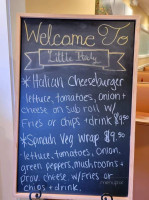 Welcome To
Little Italy
*Italian Cheeseburger
lettuce, tomatoes, onion+
cheese on sub roll w/
Fries or chips +drink $9.50
*Spinach Veg Wrap $9.50
lettuce, tomatoes, onion,
green peppers, mushrooms +
prov cheese w/ Fries or
chips + drink.